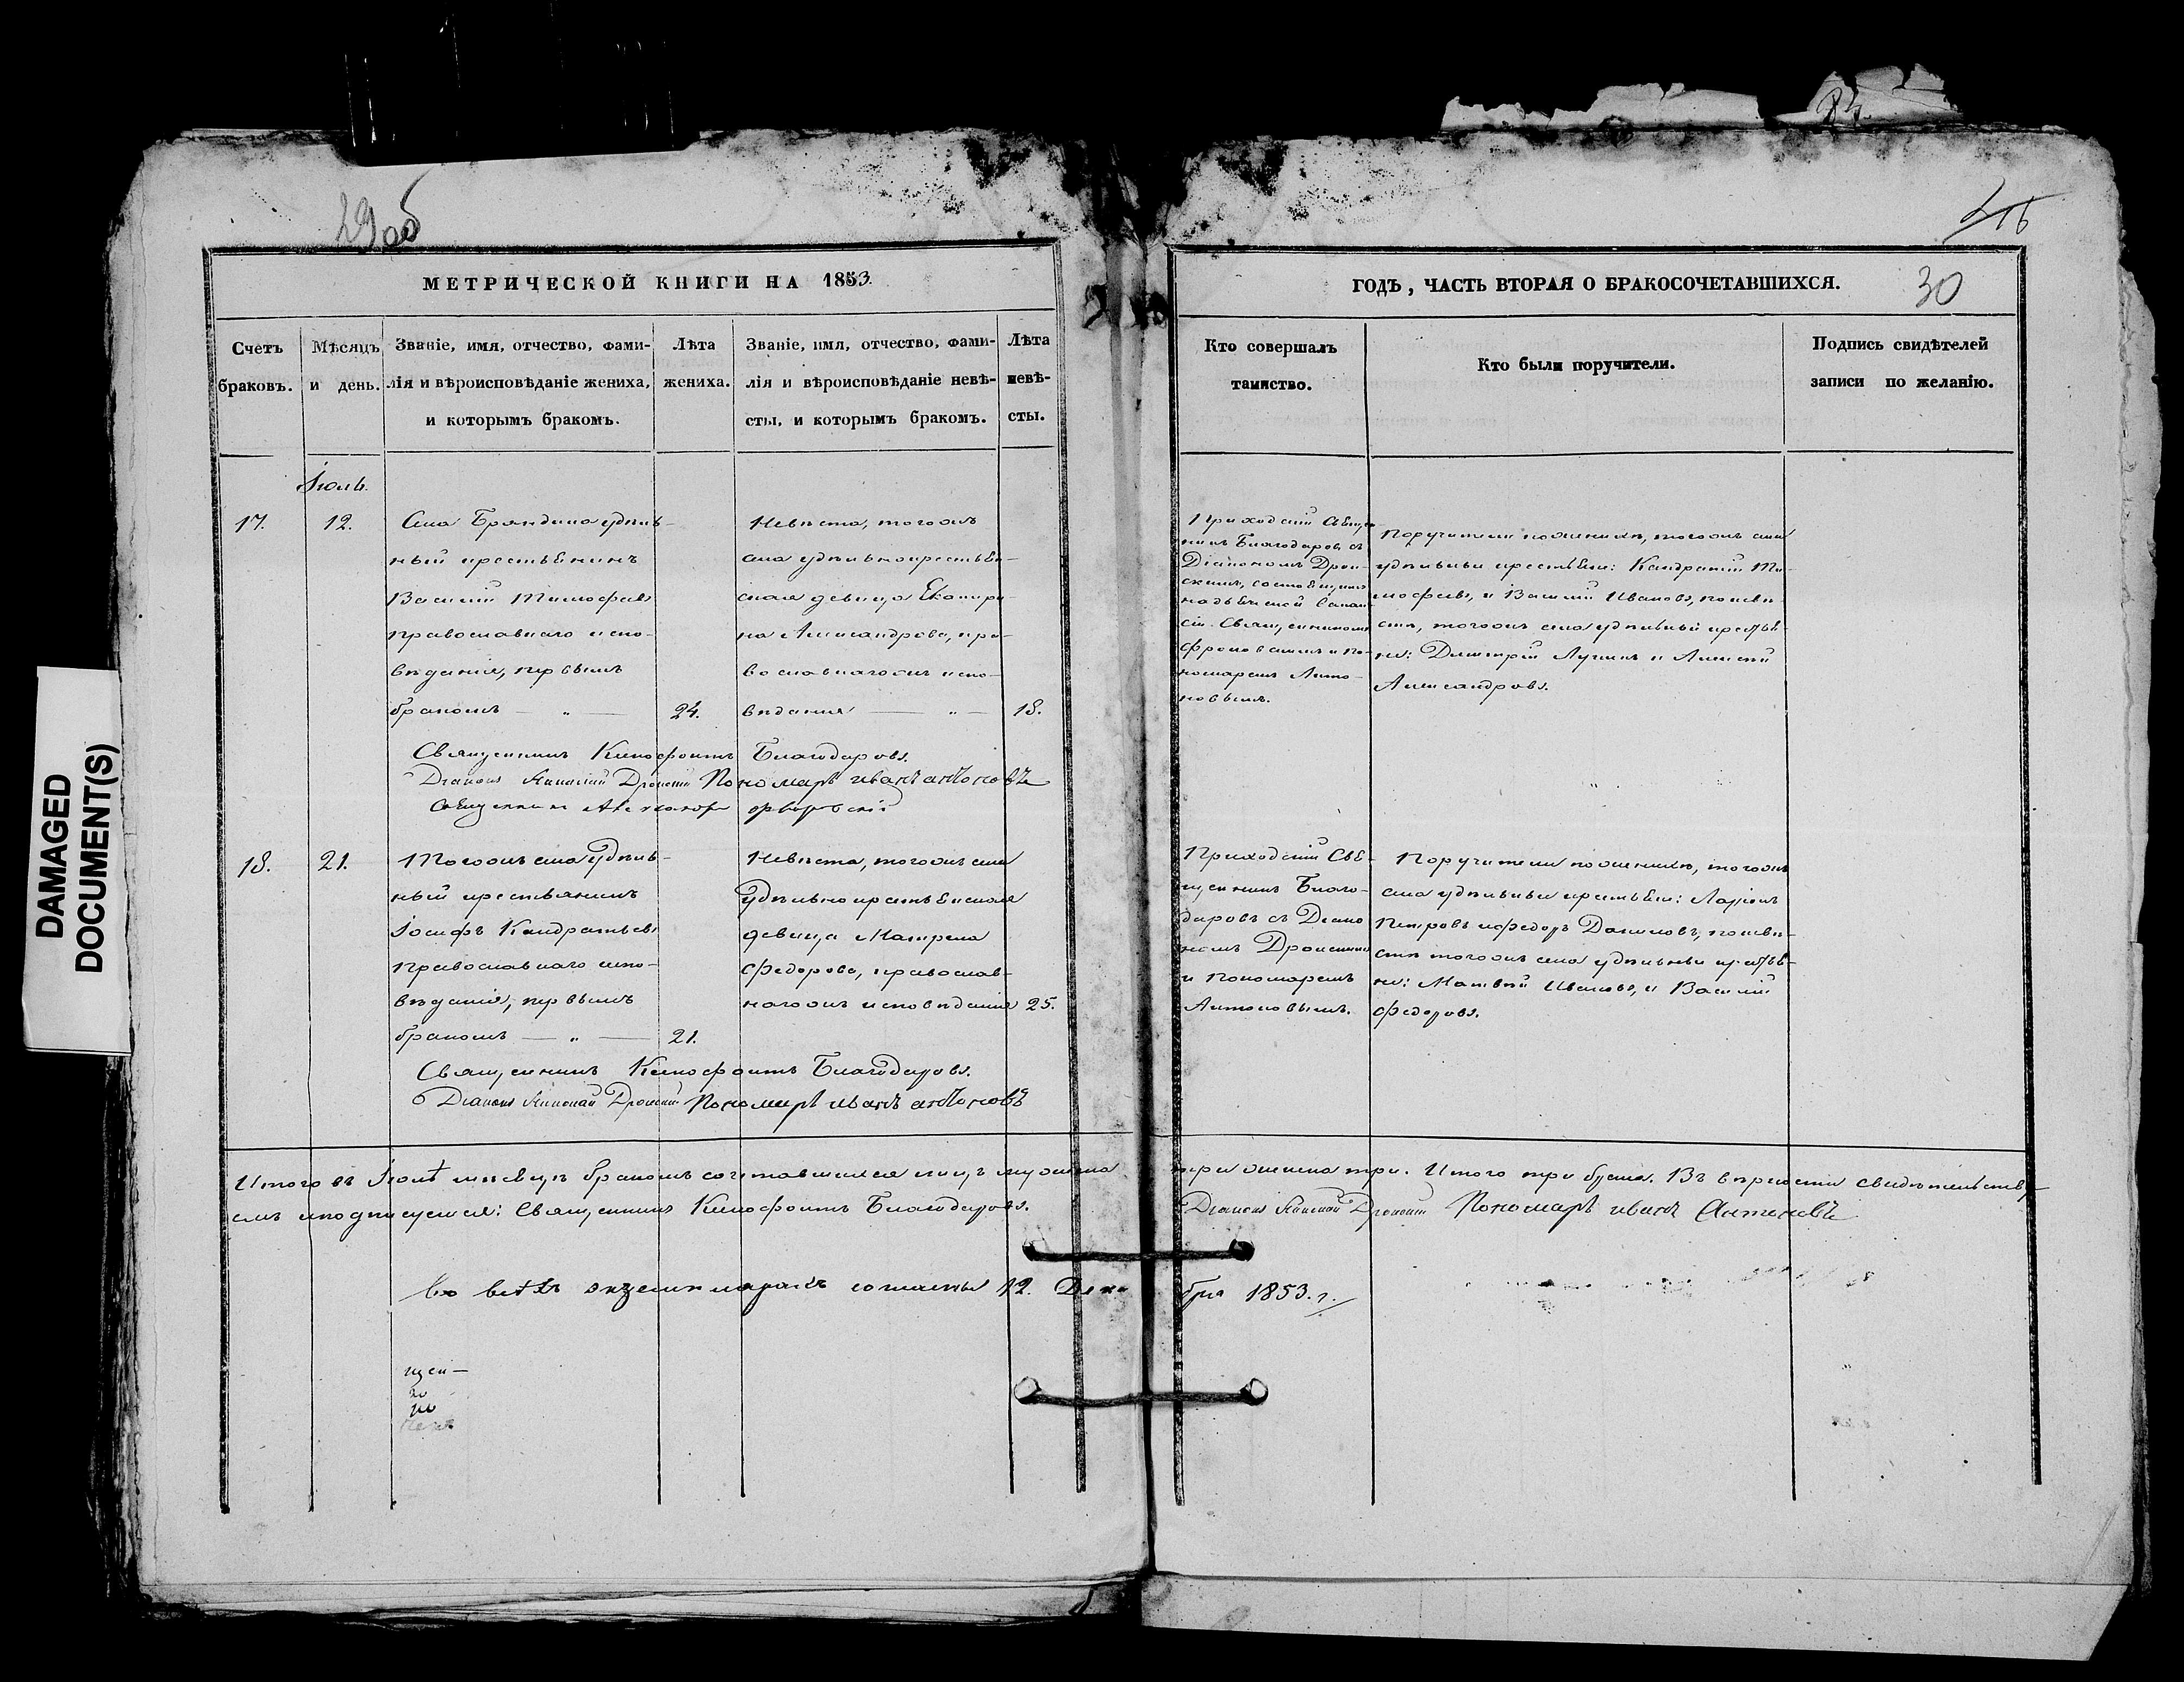 29об
МЕТРИЧЕСКОЙ КНИГИ НА 1853.
Счетъ браковъ.
Мѣсяцъ и день.
Званіе, имя, отчество, фами-
лія и вѣроисповѣданіе жениха,
и которымъ бракомъ.
Лѣта
жениха.
Званіе, имя, отчество, фами-
лія и вѣроисповѣданіе невѣ-
сты, и которымъ бракомъ.
Лѣта
невѣ-
сты.
Іюль.
17.
12.
Села Брандина удѣль-
ный крестьянинъ
Василій Тимофѣевъ
православнаго испо-
вѣданія, первымъ
бракомъ — „ —
24.
Невѣста, тогожъ
села удѣльнокрестьян-
ская дѣвица Екатери-
на Александрова, пра-
вославнагожъ испо-
вѣданія — „ —
18.
Священникъ Ксенофонтъ Благодаровъ.
Діаконъ Дронскій Пономарь иванъ антоновъ
Священникъ
18.
21.
Тогожъ села удѣль-
ный крестьянинъ
Іосифъ Кандратьевъ
православнаго испо-
вѣданія, первымъ
бракомъ — „ —
21.
Невѣста, тогожъ села
удѣльнокрестьянская
дѣвица Матрена
Федорова, православ-
нагожъ исповѣданія
25.
Священникъ Ксенофонтъ Благодаровъ.
Діаконъ Дронскій Пономарь иванъ антоновъ
Итого въ Іюлѣ мѣсяцѣ бракомъ сочетавшихся лицъ мужска
емъ и подписуемся: Священникъ Ксенофонтъ Благодаровъ.
Во всѣхъ экземплярахъ согласны 12. Дека
щен-
го
30
ГОДЪ, ЧАСТЬ ВТОРАЯ О БРАКОСОЧЕТАВШИХСЯ.
Кто совершалъ
таинство.
Кто были поручители.
Подпись свидѣтелей
записи по желанію.
Приходскій Свящ
никъ Благодаровъ съ
Діакономъ Дрон-
скимъ,
Священникомъ
и По-
номаремъ Анто-
новымъ.
Поручители по женихѣ, тогожъ села
удѣльные крестьяне: Кандратій Ти-
мофѣевъ, и Василій Ивановъ, по невѣ-
стѣ, тогожъ села удѣльные крестья-
не: Димитрій Лукинъ и Алексѣй
Александровъ.
Приходскій Свя-
щенникъ Благо-
даровъ съ Діако
номъ Дронскимъ
и Пономаремъ
Антоновымъ.
Поручители по женихѣ, тогожъ
села удѣльные крестьяне: Ларіонъ
Петровъ и Федоръ Даниловъ, по невѣ-
стѣ тогожъ села удѣльные крестья-
не: Матвѣй Ивановъ, и Василій
Федоровъ.
три женска три. Итого три брака. Въ вѣрности свидѣтельству-
Діаконъ Дронскій Пономарь иванъ Антоновъ
бря 1853. г.
DAMAGED
DOCUMENT(S)